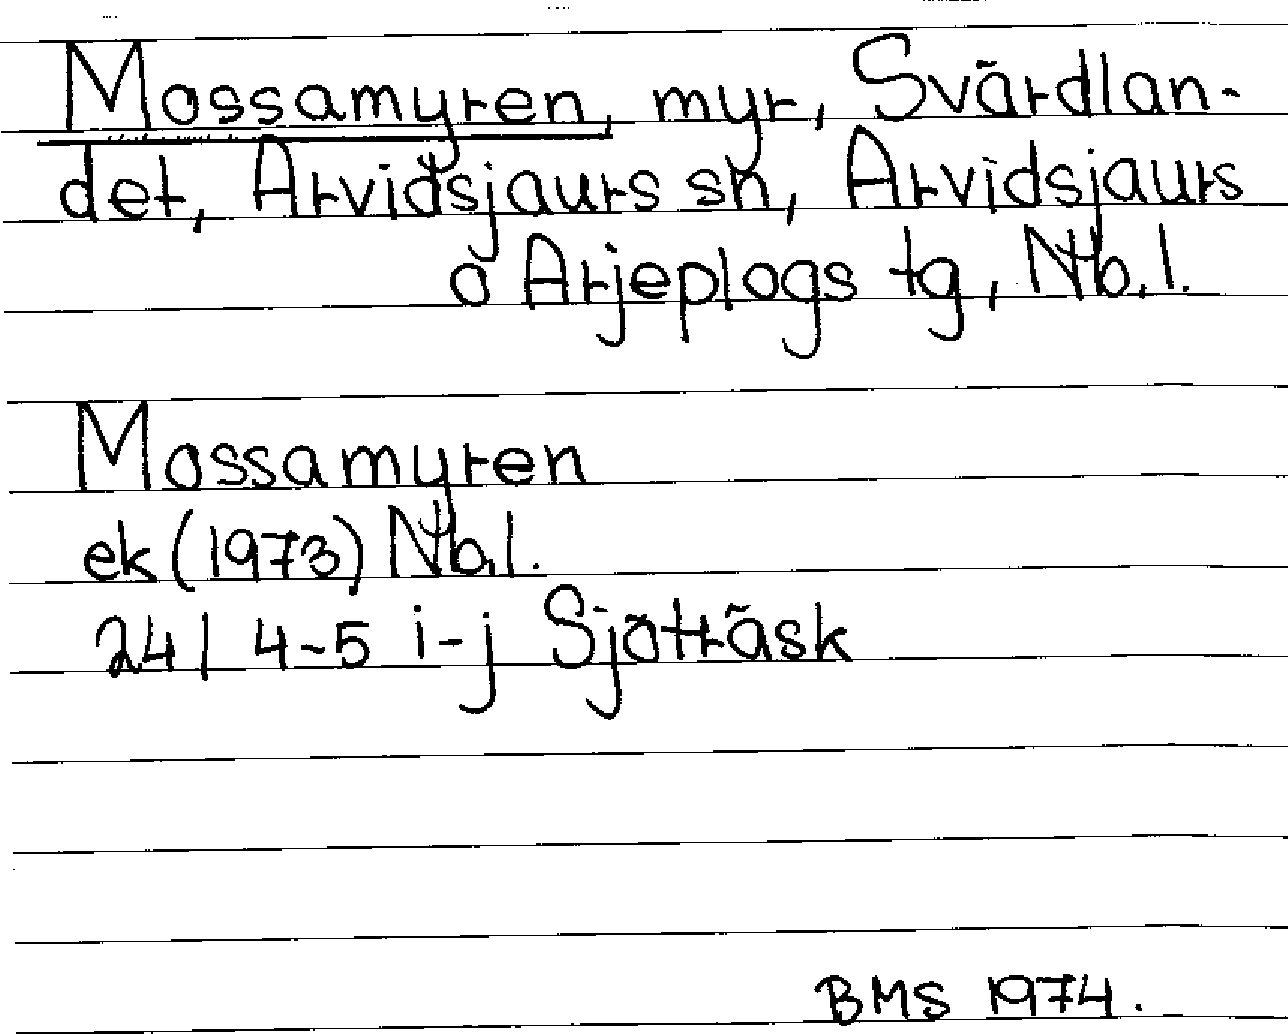 Mossamyren, myr, Svärdlan-
det, Arvidsjaurs sn, Arvidsjaurs
o Arjeplogs tg, Nb.l.
Mossamyren
ek (1973) Nb.l.
24 I 4-5 i-j Sjöträsk
BMS 1974.